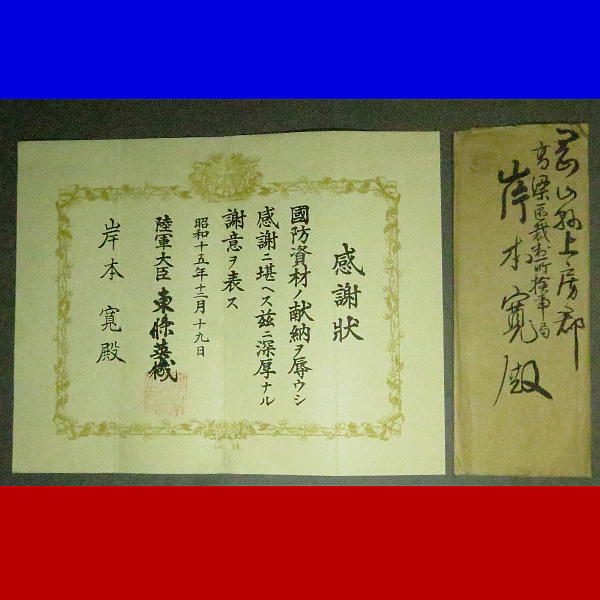 岡山縣上房郡
高梁區裁判所検事局
岸本寛殿
感謝狀
國防資材ノ献納ヲ辱ウシ
感謝ニ堪ヘス玆ニ深厚ナル
謝意ヲ表ス
昭和十五年十二月十九日
陸軍大臣 東條英機
岸本寛殿